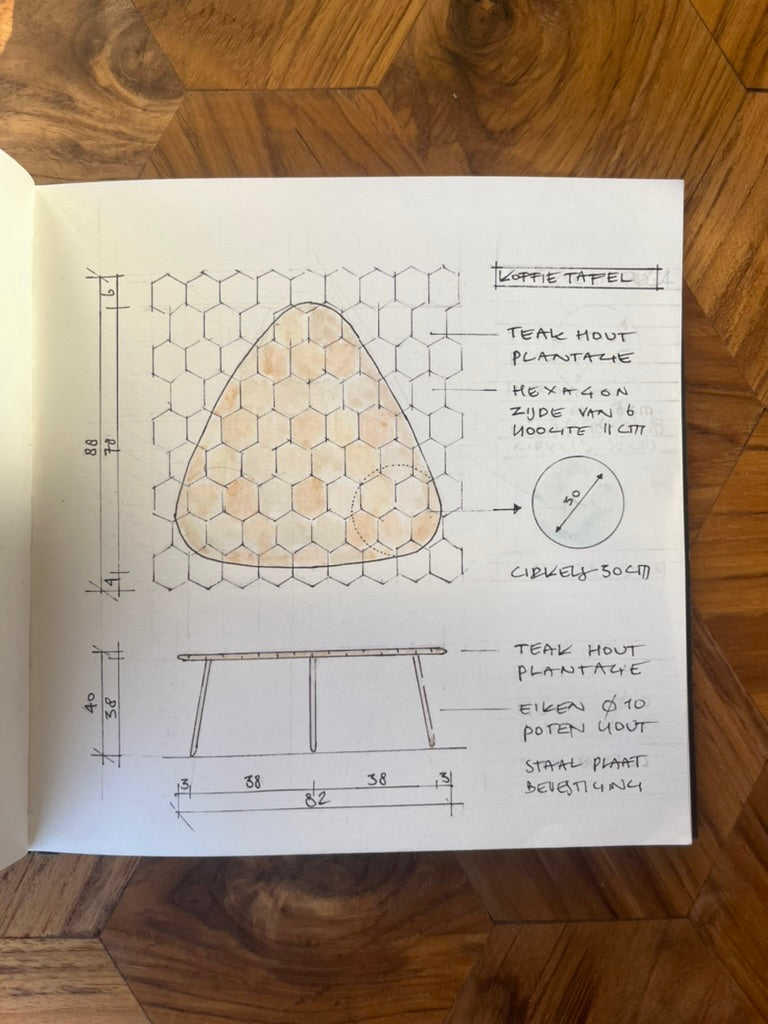 KOFFIE TAFEL
TEAK HOUT
PLANTAGE
HEXAGON
ZIJDE VAN 6
HOOGTE 11 CM
6
88
78
4
30
CIRKELS 30CM
TEAK HOUT
PLANTAGE
40
38
EIKEN Ø10
POTEN HOUT
STAAL PLAAT
BEVESTIGING
3
38
38
3
82